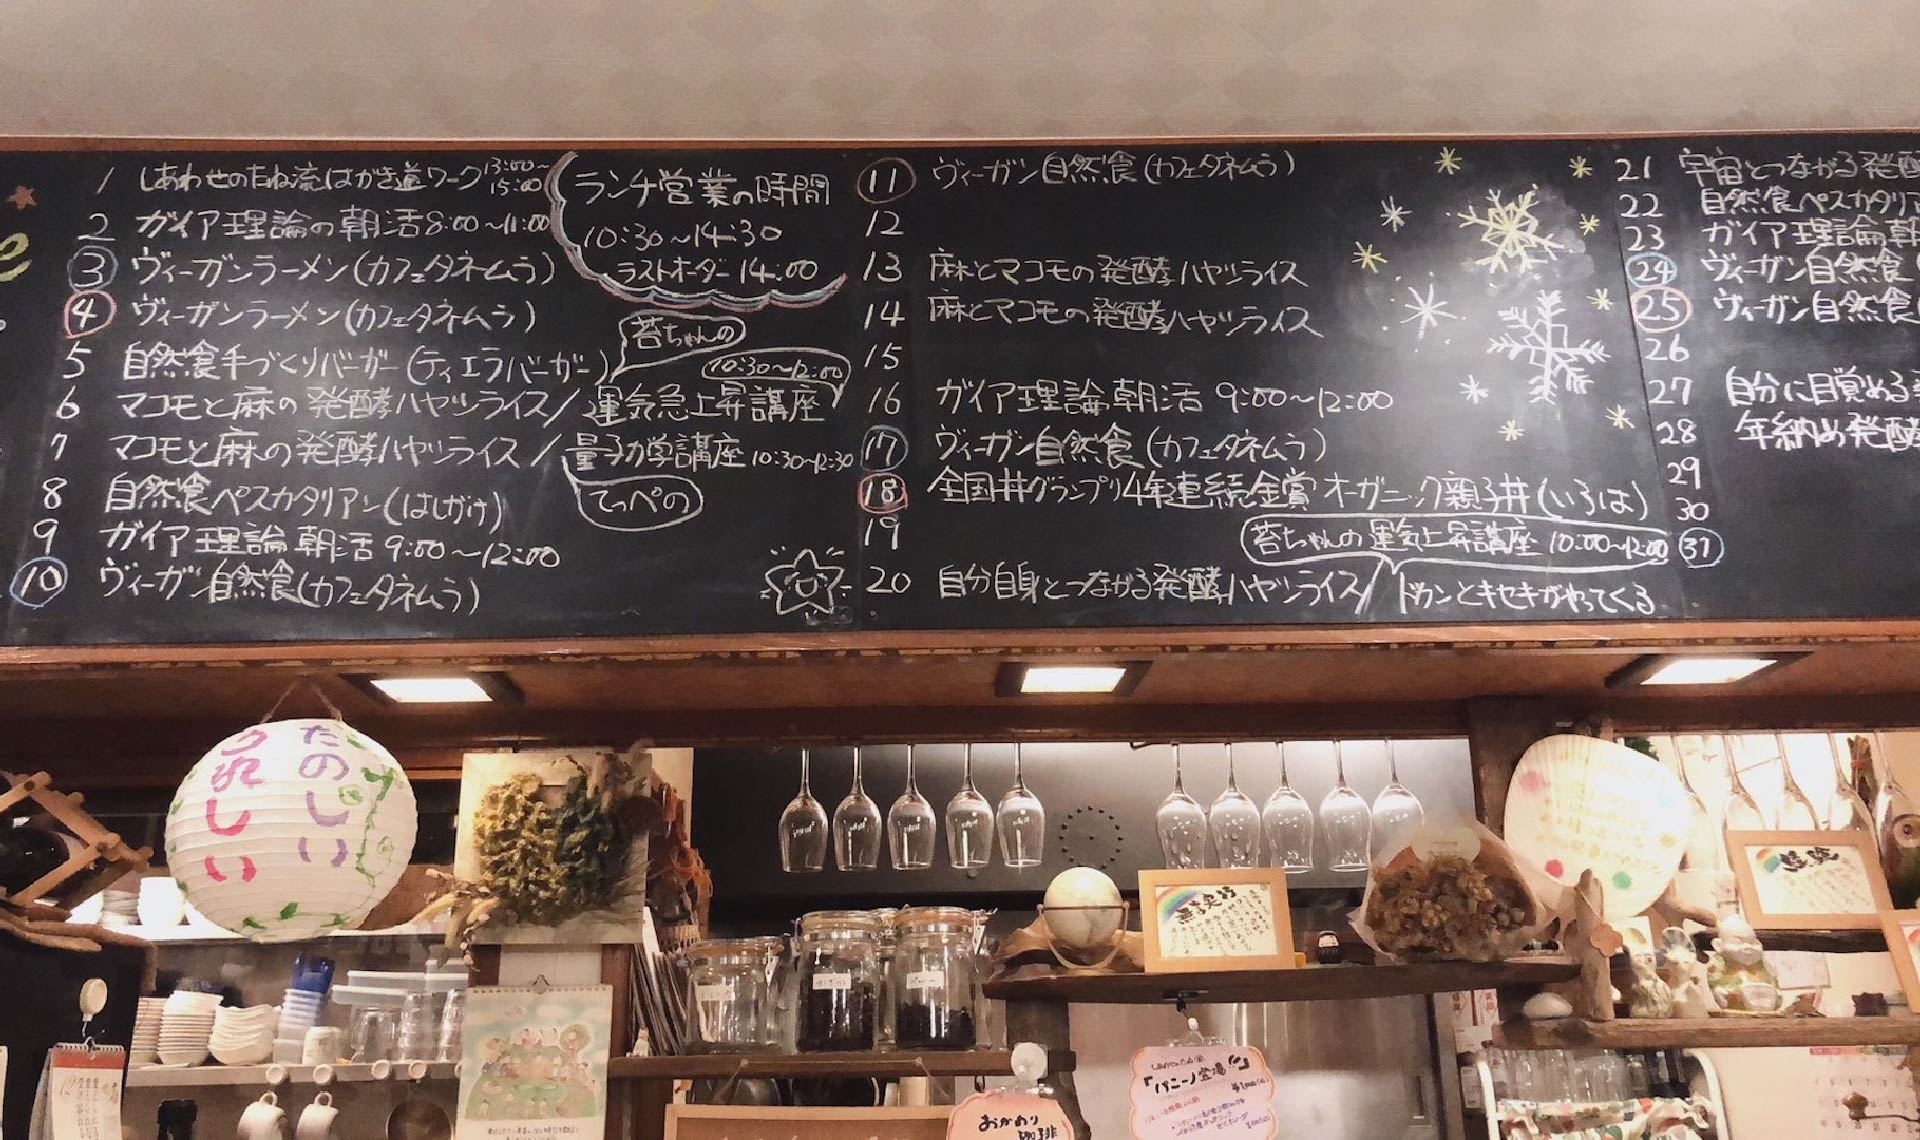 1 しあわせのたね流はがき道ワーク 13:00~15:00
2 ガイア理論の朝活 8:00~11:00
3 ヴィーガンラーメン(カフェタネムラ)
4 ヴィーガンラーメン(カフェタネムラ)
5 自然食手づくりバーガー(ティエラバーガー)
6 マコモと麻の発酵ハヤシライス/運気急上昇講座
苔ちゃんの
10:30~12:00
7 マコモと麻の発酵ハヤシライス/量子力学講座 10:30~12:30
てっぺの
8 自然食ペスカタリアン(はしかけ)
9 ガイア理論朝活 9:00~12:00
10 ヴィーガン自然食(カフェタネムラ)
ランチ営業の時間
10:30~14:30
ラストオーダー 14:00
11 ヴィーガン自然食(カフェタネムラ)
12
13 麻とマコモの発酵ハヤシライス
14 麻とマコモの発酵ハヤシライス
15
16 ガイア理論朝活 9:00~12:00
17 ヴィーガン自然食(カフェタネムラ)
18 全国丼グランプリ4年連続金賞オーガニック親子丼(いろは)
19
苔ちゃんの運気上昇講座 10:00~12:00
20 自分自身とつながる発酵ハヤシライス/ドカンとキセキがやってくる
21 宇宙とつながる発酵
22 自然食ペスカタリア
23 ガイア理論朝
24 ヴィーガン自然食(
25 ヴィーガン自然食(
26
27 自分に目覚める発
28 年納め発酵
29
30
31
たのしい
うれしい
しあわせのたね
「パニーノ登場」
おかわり
珈琲